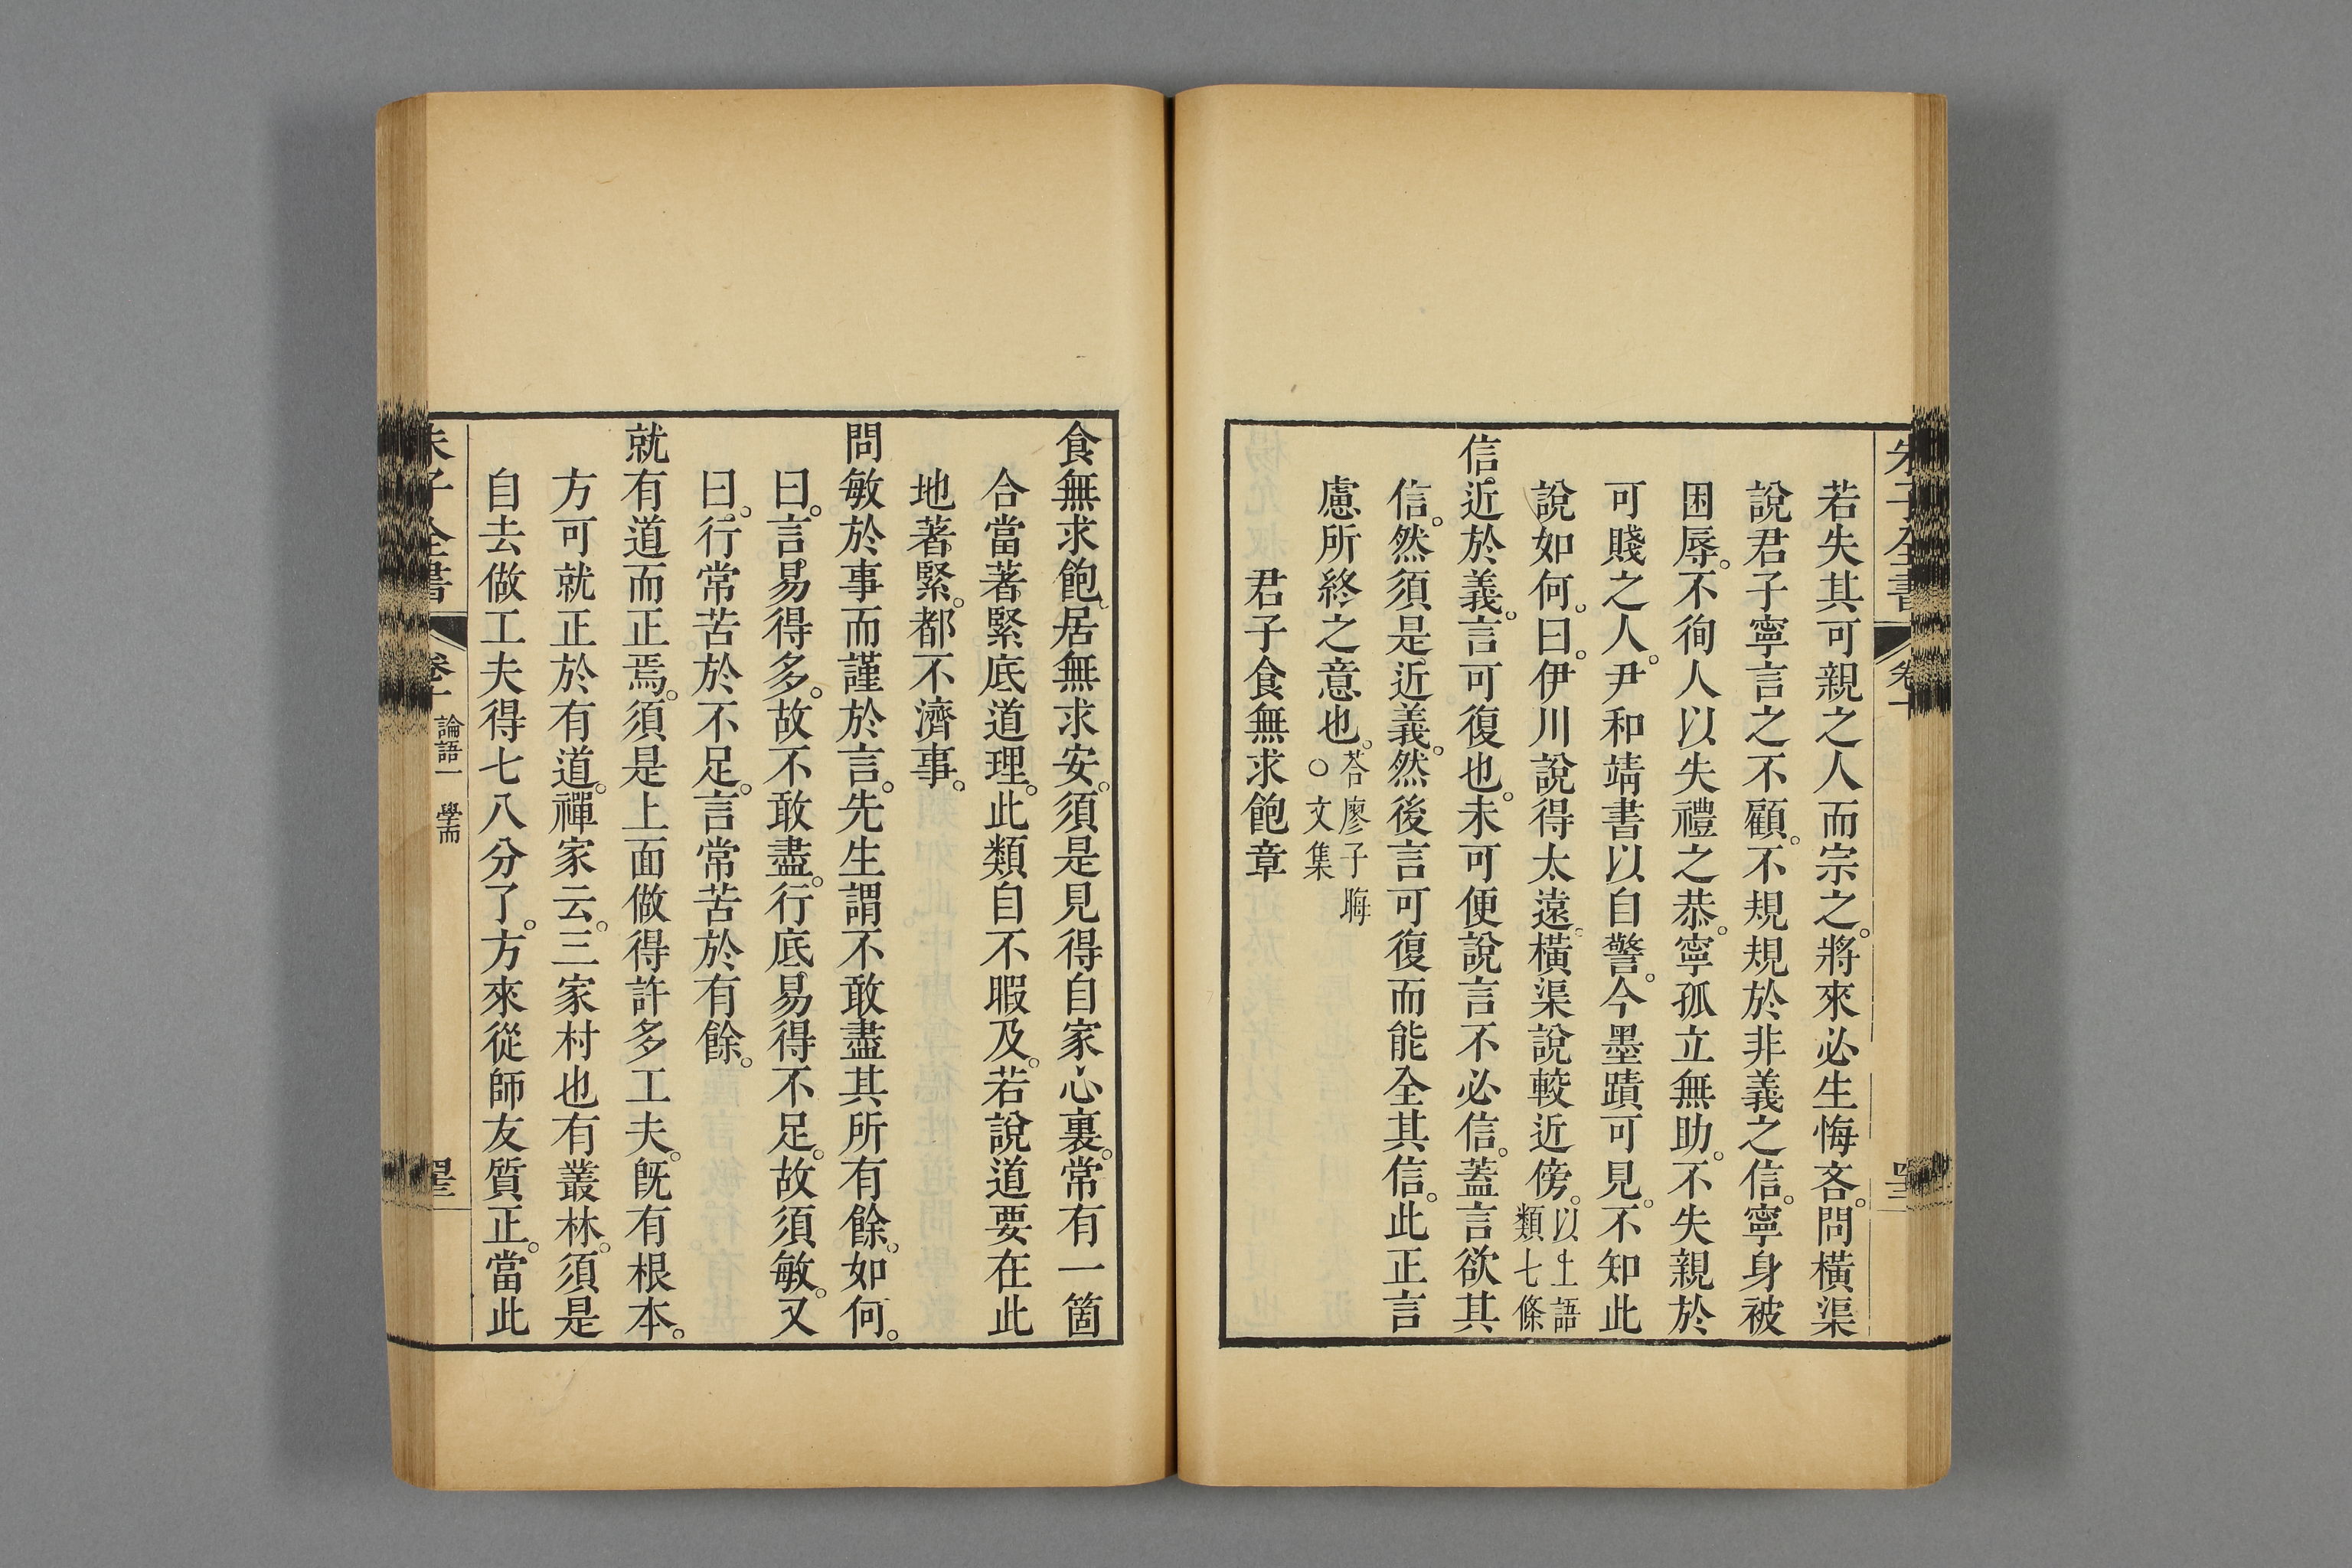 若失其可親之人而宗之。將來必生悔吝。問橫渠
說君子寧言之不顧。不規規於非義之信。寧身被
困辱。不徇人以失禮之恭。寧孤立無助。不失親於
可賤之人。尹和靖書以自警。今墨蹟可見。不知此
說如何。曰。伊川說得太遠。橫渠說較近傍。以上語類七條
信近於義。言可復也。未可便說言不必信。蓋言欲其
信。然須是近義。然後言可復而能全其信。此正言
慮所終之意也。荅廖子晦○文集
君子食無求飽章
食無求飽。居無求安。須是見得自家心裏。常有一箇
合當著緊底道理。此類自不暇及。若說道要在此
地著緊。都不濟事。
問敏於事而謹於言。先生謂不敢盡其所有餘。如何。
曰。言易得多。故不敢盡。行底易得不足。故須敏。又
曰。行常苦於不足。言常苦於有餘。
就有道而正焉。須是上面做得許多工夫。旣有根本。
方可就正於有道。禪家云。三家村也有叢林。須是
自去做工夫得七八分了。方來從師友質正。當此
論語一 學而